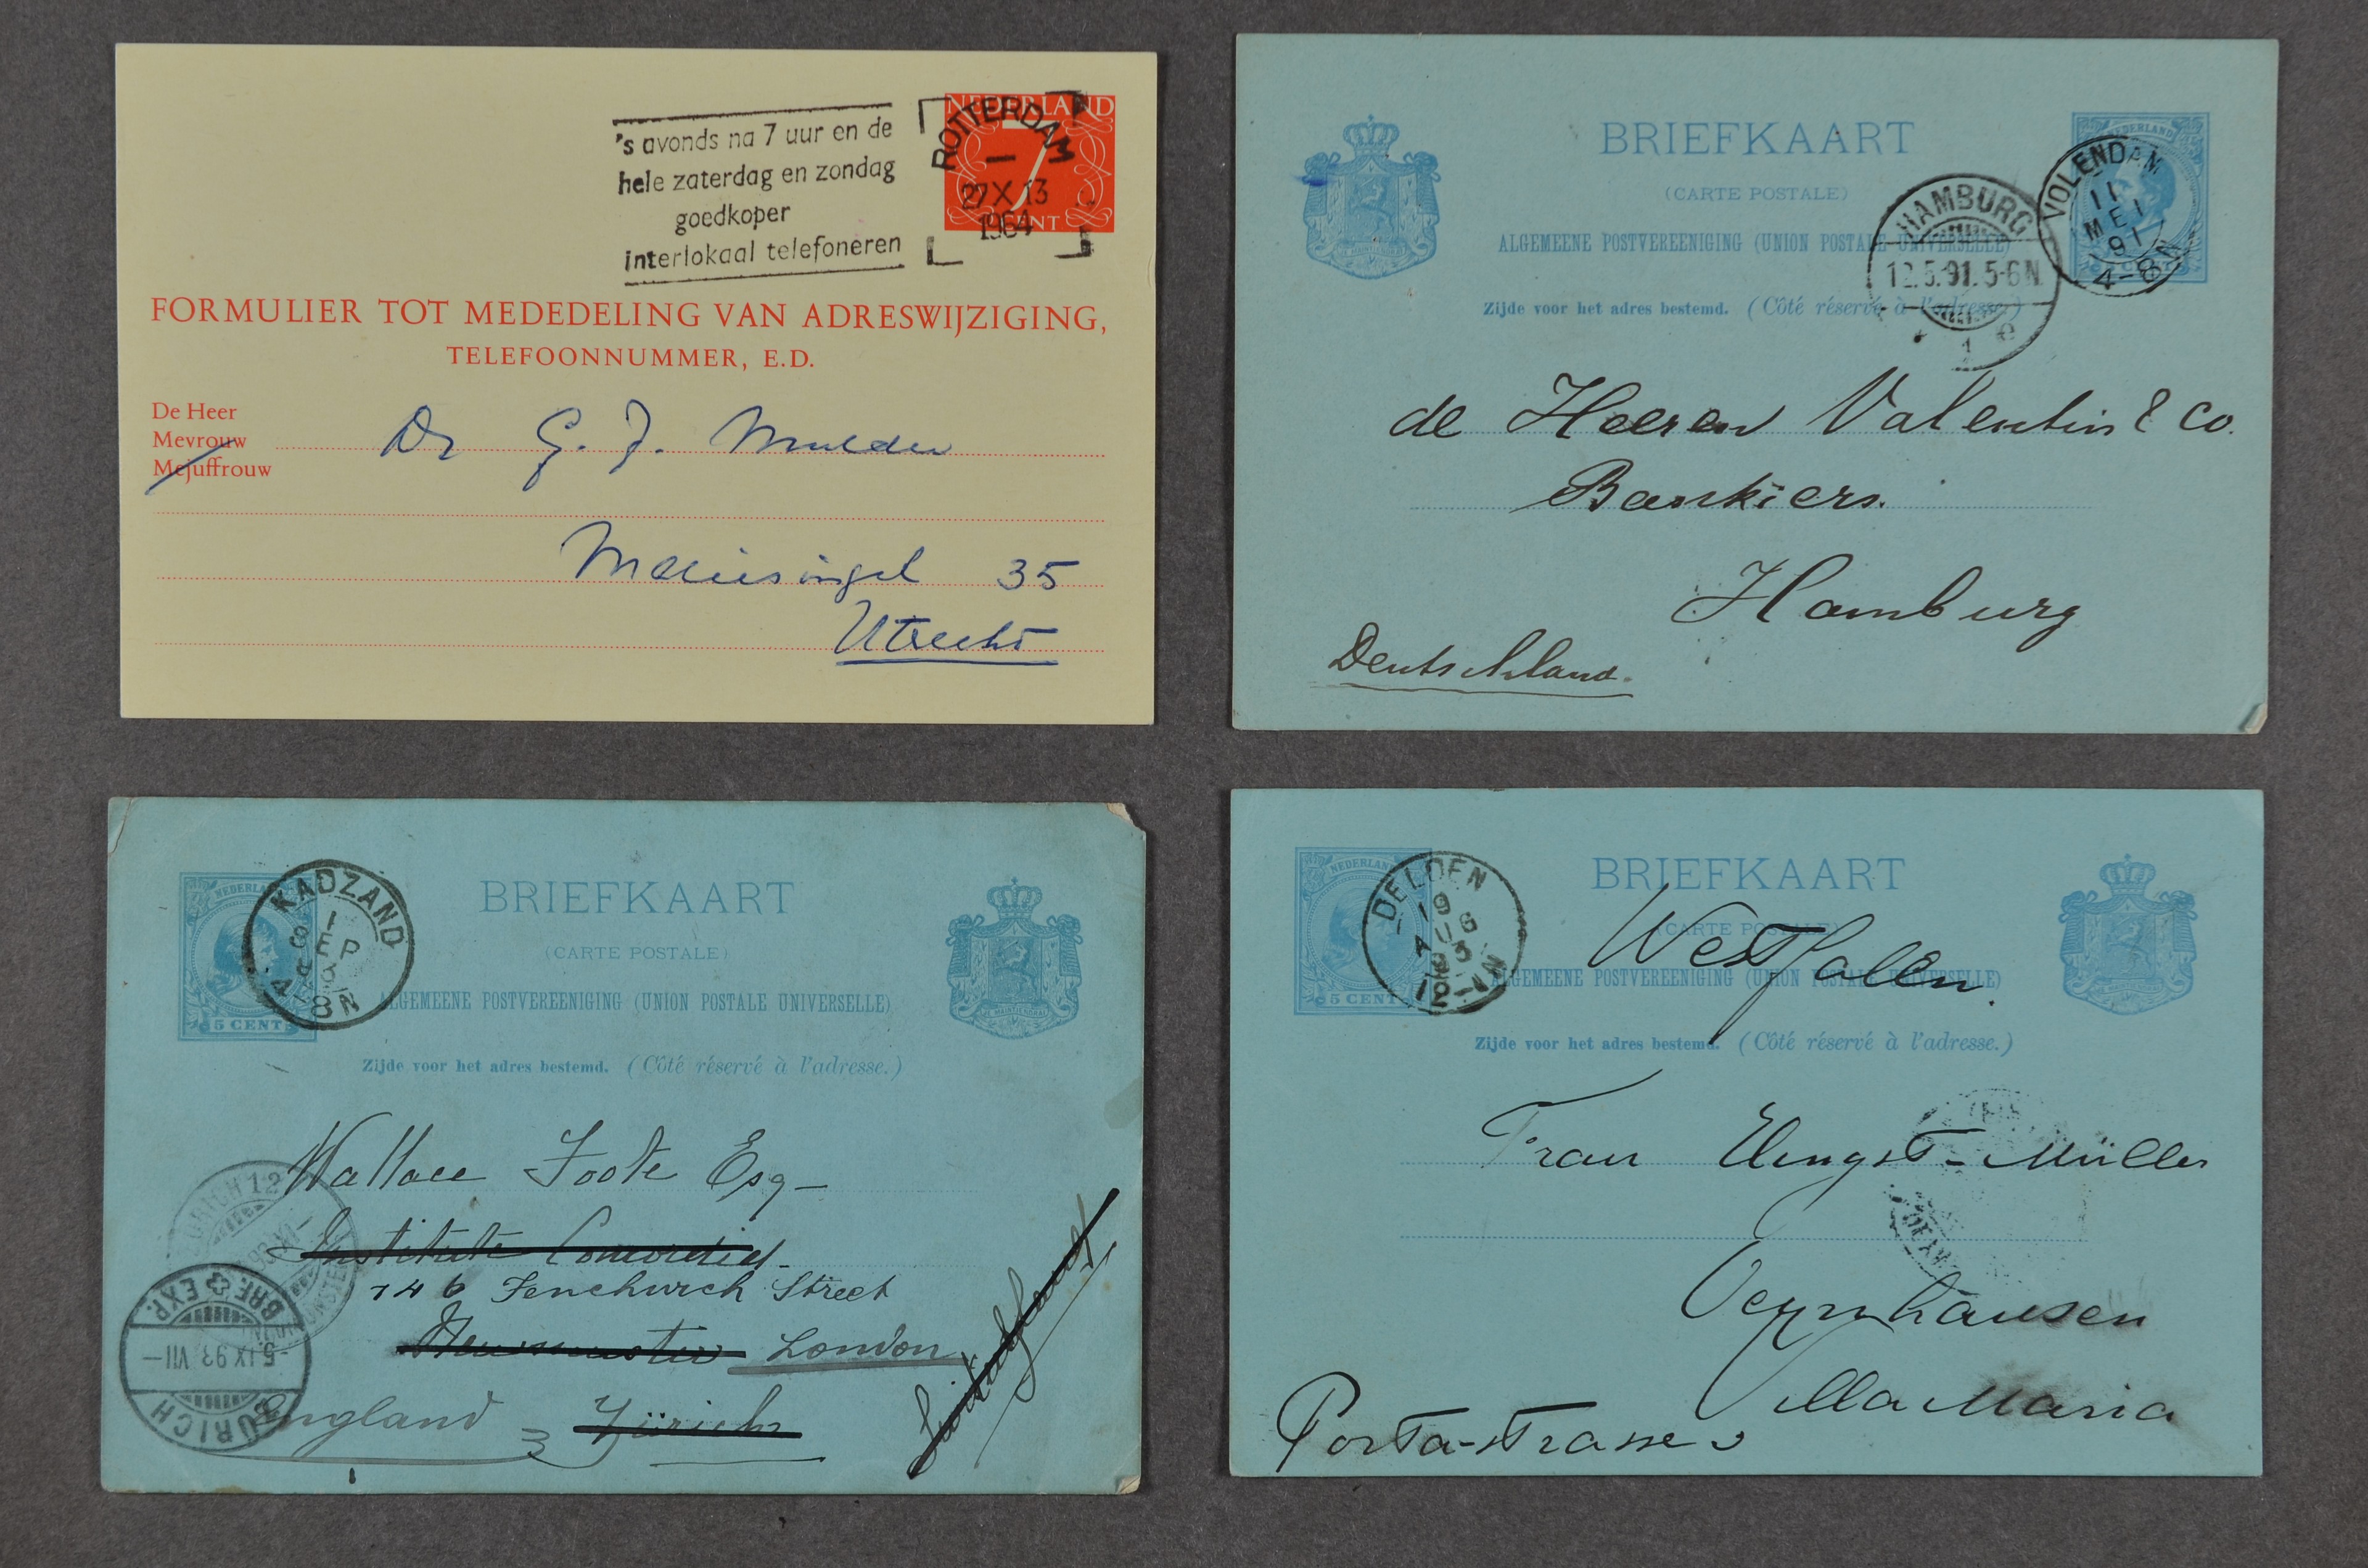 's avonds na 7 uur en de
hele zaterdag en zondag
goedkoper
interlokaal telefoneren
NEDERLAND
7
CENT
ROTTERDAM
27 X 13
1964
FORMULIER TOT MEDEDELING VAN ADRESWIJZIGING,
TELEFOONNUMMER, E.D.
De Heer
Mevrouw
Mejuffrouw
Dr G. J. Mulder
Maliesingel 35
Utrecht
BRIEFKAART
(CARTE POSTALE)
ALGEMEENE POSTVEREENIGING (UNION POSTALE UNIVERSELLE)
Zijde voor het adres bestemd. (Côté réservé à l'adresse.)
NEDERLAND
VOLENDAM
11
MEI
91
4-8N
HAMBURG
12.5.91.5-6N
1
de Heeren Valentin & Co.
Bankiers.
Hamburg
Deutschland.
NEDERLAND
5 CENT
KADZAND
4-8N
BRIEFKAART
(CARTE POSTALE)
ALGEMEENE POSTVEREENIGING (UNION POSTALE UNIVERSELLE)
Zijde voor het adres bestemd. (Côté réservé à l'adresse.)
Wallace Foote Esq-
Institute Concordia
146 Fenchurch Street
London
England
Zürich
ZÜRICH 12
BRF. EXP.
-5.IX.93.VII-
ZÜRICH
NEDERLAND
5 CENT
DELDEN
19
BRIEFKAART
(CARTE POSTALE)
ALGEMEENE POSTVEREENIGING (UNION POSTALE UNIVERSELLE)
Zijde voor het adres bestemd. (Côté réservé à l'adresse.)
Westfalen.
Frau Müller
Oeynhausen
Villa Maria
Porta-strasse